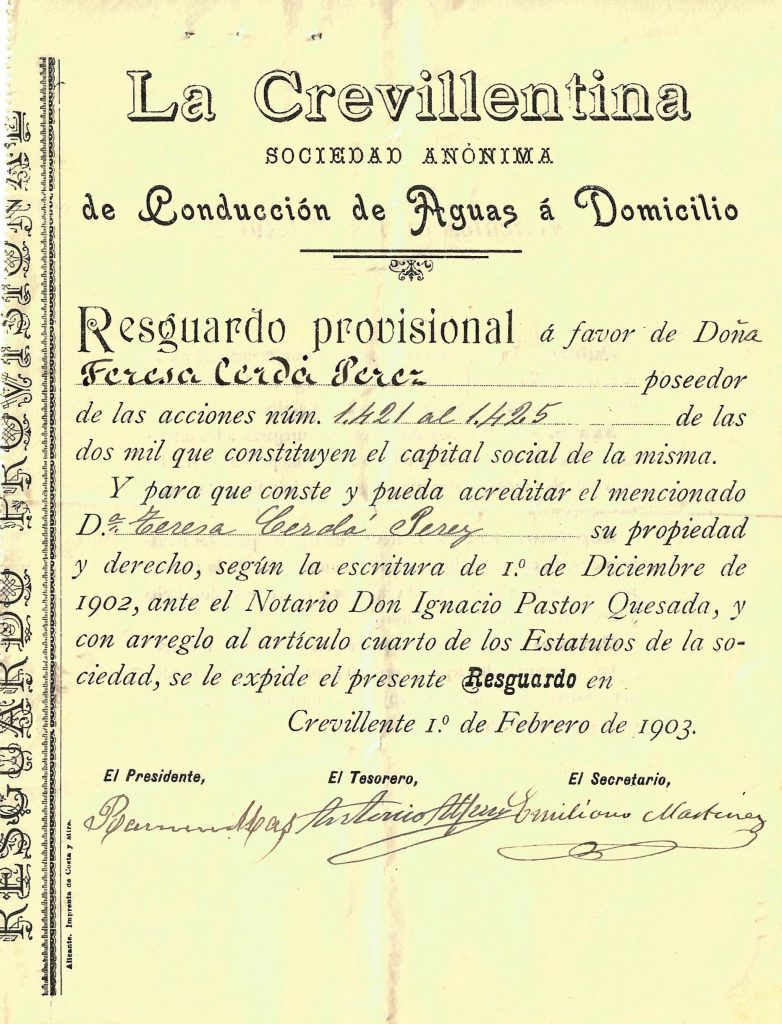 La Crevillentina
SOCIEDAD ANÓNIMA
de Conducción de Aguas á Domicilio
Resguardo provisional á favor de Doña
Teresa Cerdá Perez poseedor
de las acciones núm. 1.421 al 1.425 de las
dos mil que constituyen el capital social de la misma.
Y para que conste y pueda acreditar el mencionado
D.ª Teresa Cerdá Perez su propiedad
y derecho, según la escritura de 1.º de Diciembre de
1902, ante el Notario Don Ignacio Pastor Quesada, y
con arreglo al artículo cuarto de los Estatutos de la so-
ciedad, se le expide el presente Resguardo en
Crevillente 1.º de Febrero de 1903.
El Presidente, El Tesorero, El Secretario,
Ramon Mas Antonio Emiliano Martinez
RESGUARDO PROVISIONAL
Alicante. Imprenta de Costa y Mira.